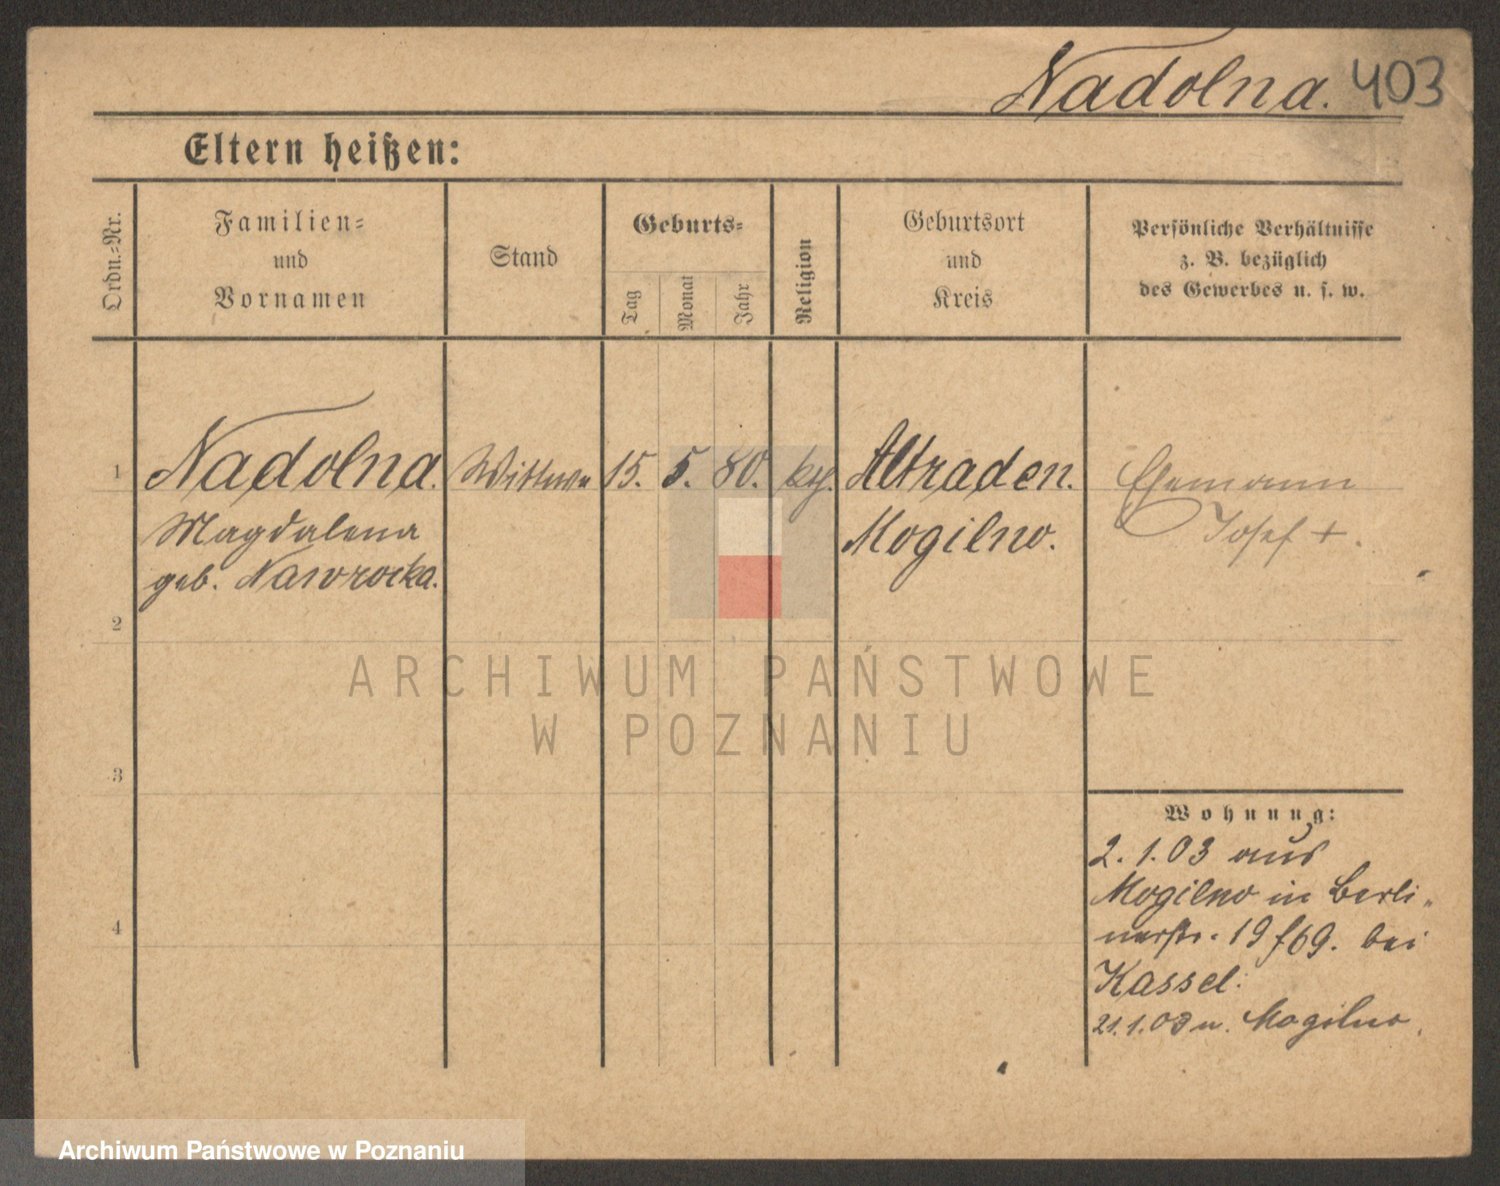 Nadolna. 403
Eltern heißen:
Ordn.-Nr.
Familien-
und
Vornamen
Stand
Geburts-
Tag
Monat
Jahr
Religion
Geburtsort
und
Kreis
Persönliche Verhältnisse
z. B. bezüglich
des Gewerbes u. s. w.
1 Nadolna. Wittwe 15. 5. 80. kth. Altraden. Ehemann
Magdalena Mogilno. Josef +.
geb. Nawrocka.
2
ARCHIWUM PAŃSTWOWE
W POZNANIU
3
Wohnung:
2. 1. 03 aus
Mogilno in Berli-
nerstr. 19 bei
4
Kassel.
21. 1. 03 n. Mogilno.
Archiwum Państwowe w Poznaniu